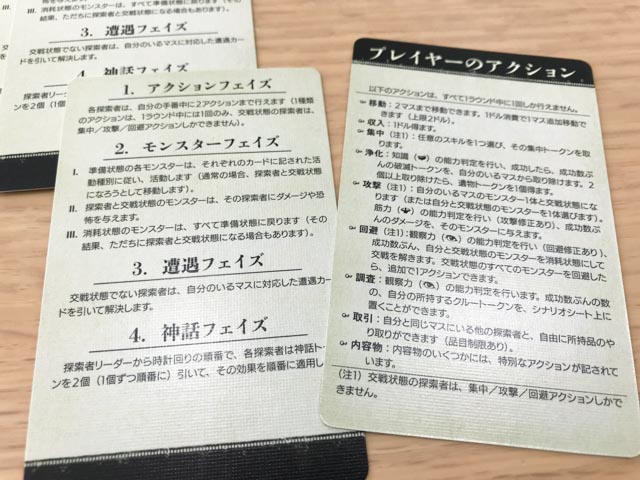 結果、ただちに探索者と交戦状態になる場合もあります）。
3. 遭遇フェイズ
交戦状態でない探索者は、自分のいるマスに対応した遭遇カー
ドを引いて解決します。
4. 神話フェイズ
探索者リーダー
ンを2個（1個
1. アクションフェイズ
各探索者は、自分の手番中に2アクションまで行えます（1種類
のアクションは、1ラウンド中には1回のみ、交戦状態の探索者は、
集中／攻撃／回避アクションしかできません）。
2. モンスターフェイズ
I. 準備状態の各モンスターは、それぞれのカードに記された活
動種別に従い、活動します（通常の場合、探索者と交戦状態
になろうとして移動します）。
II. 探索者と交戦状態のモンスターは、その探索者にダメージや恐
怖を与えます。
III. 消耗状態のモンスターは、すべて準備状態に戻ります（その
結果、ただちに探索者と交戦状態になる場合もあります）。
3. 遭遇フェイズ
交戦状態でない探索者は、自分のいるマスに対応した遭遇カー
ドを引いて解決します。
4. 神話フェイズ
探索者リーダーから時計回りの順番で、各探索者は神話トー
ンを2個（1個ずつ順番に）引いて、その効果を順番に適用し
プレイヤーのアクション
以下のアクションは、すべて1ラウンド中に1回しか行えません。
移動：2マスまで移動できます。1ドル消費で1マス追加移動で
きます（上限2ドル）。
収入：1ドル得ます。
集中（注1）：任意のスキルを1つ選び、その集中トークンを取
ります。
浄化：知識（）の能力判定を行い、成功したら、成功数ぶ
んの破滅トークンを、自分のいるマスから取り除けます。2
個以上取り除けたら、遺物トークンを1個得ます。
攻撃（注1）：自分のいるマスのモンスター1体と交戦状態にな
ります（または自分と交戦状態のモンスターを1体選びます）。
筋力（）の能力判定を行い（攻撃修正あり）、成功数ぶ
んのダメージを、そのモンスターに与えます。
回避（注1）：観察力（）の能力判定を行い（回避修正あり）、
成功数ぶん、自分と交戦状態のモンスターを消耗状態にして
交戦を解きます。交戦状態のすべてのモンスターを回避した
ら、追加で1アクションできます。
調査：観察力（）の能力判定を行います。成功数ぶんの数
の、自分の所持するクルートークンを、シナリオシート上に
置くことができます。
取引：自分と同じマスにいる他の探索者と、自由に所持品のや
り取りができます（品目制限あり）。
内容物：内容物のいくつかには、特別なアクションが記されて
います。
（注1）交戦状態の探索者は、集中／攻撃／回避アクションしかで
きません。